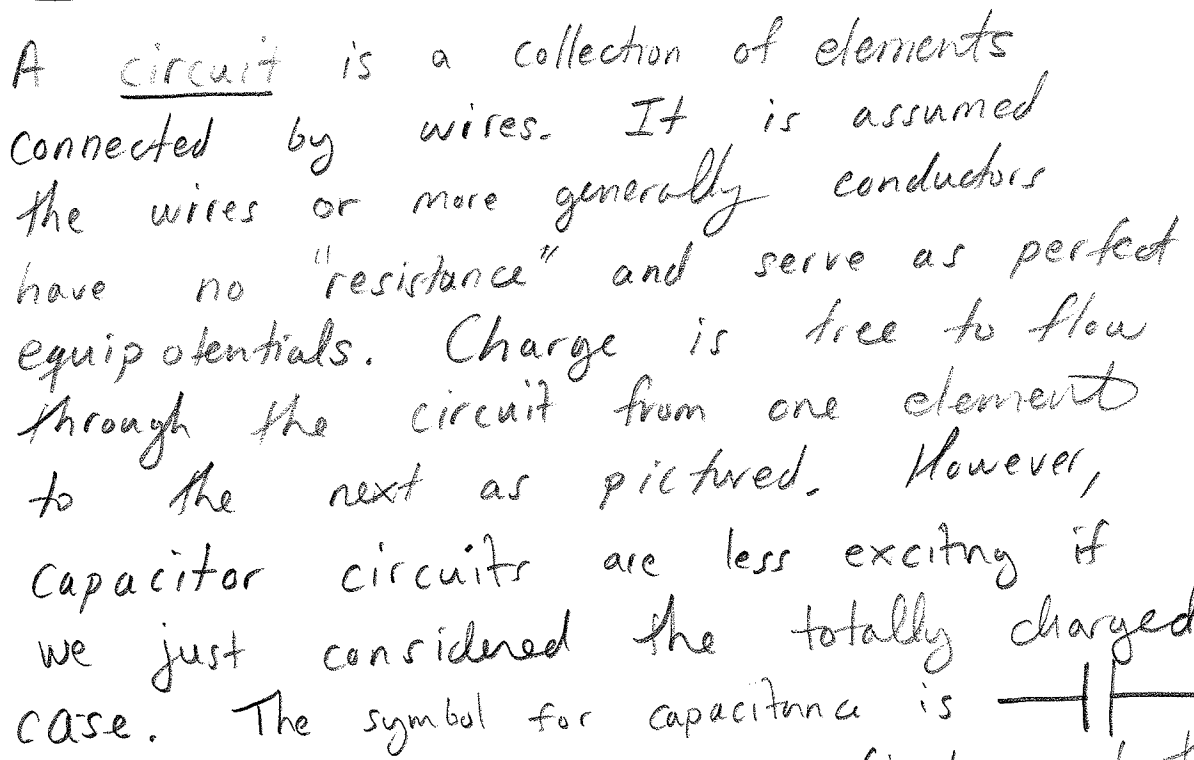 A circuit is a collection of elements
connected by wires. It is assumed
the wires or more generally conductors
have no "resistance" and serve as perfect
equipotentials. Charge is free to flow
through the circuit from one element
to the next as pictured. However,
capacitor circuits are less exciting if
we just considered the totally charged
case. The symbol for capacitance is